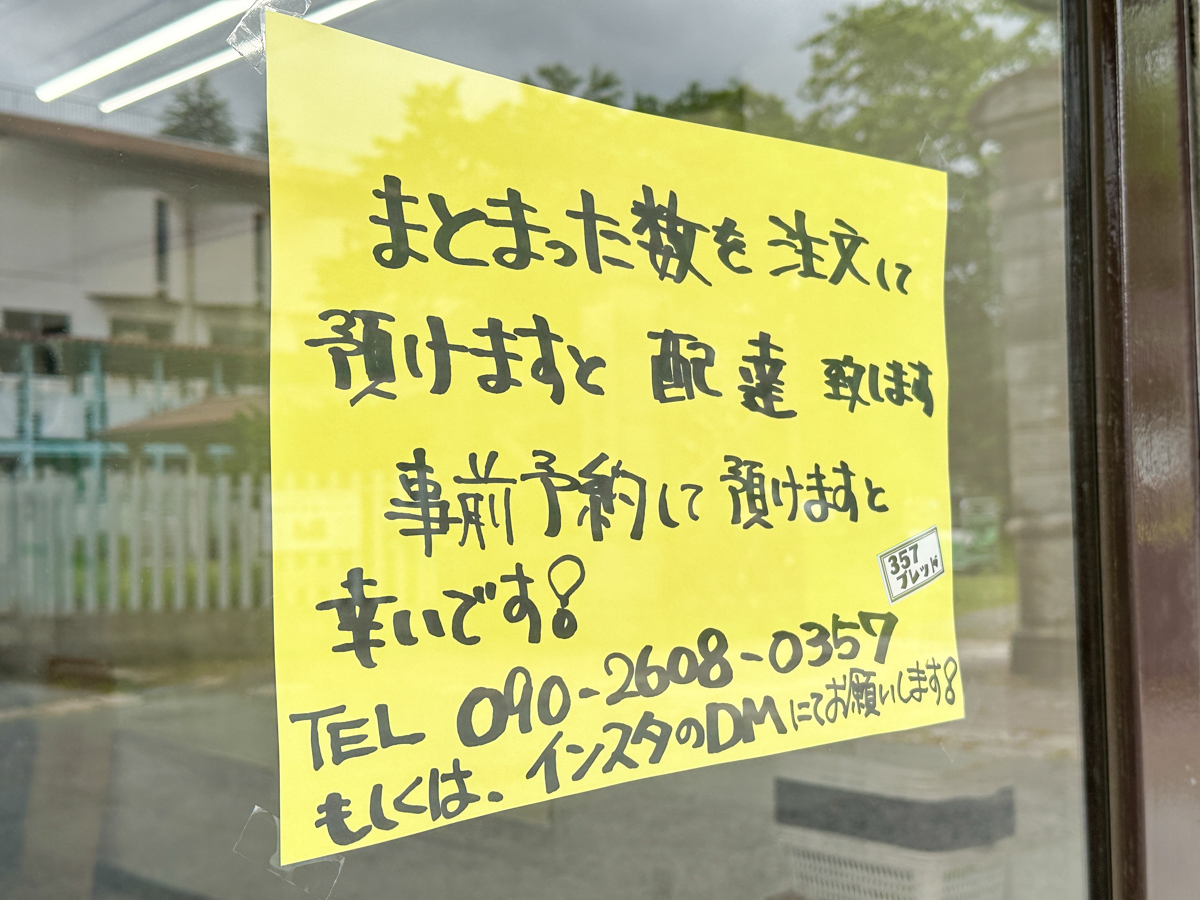 まとまった数を注文して
預けますと 配達 致します
事前予約して 預けますと
幸いです!
357
ブレッド
TEL 090-2608-0357
もしくは、インスタのDMにてお願いします!